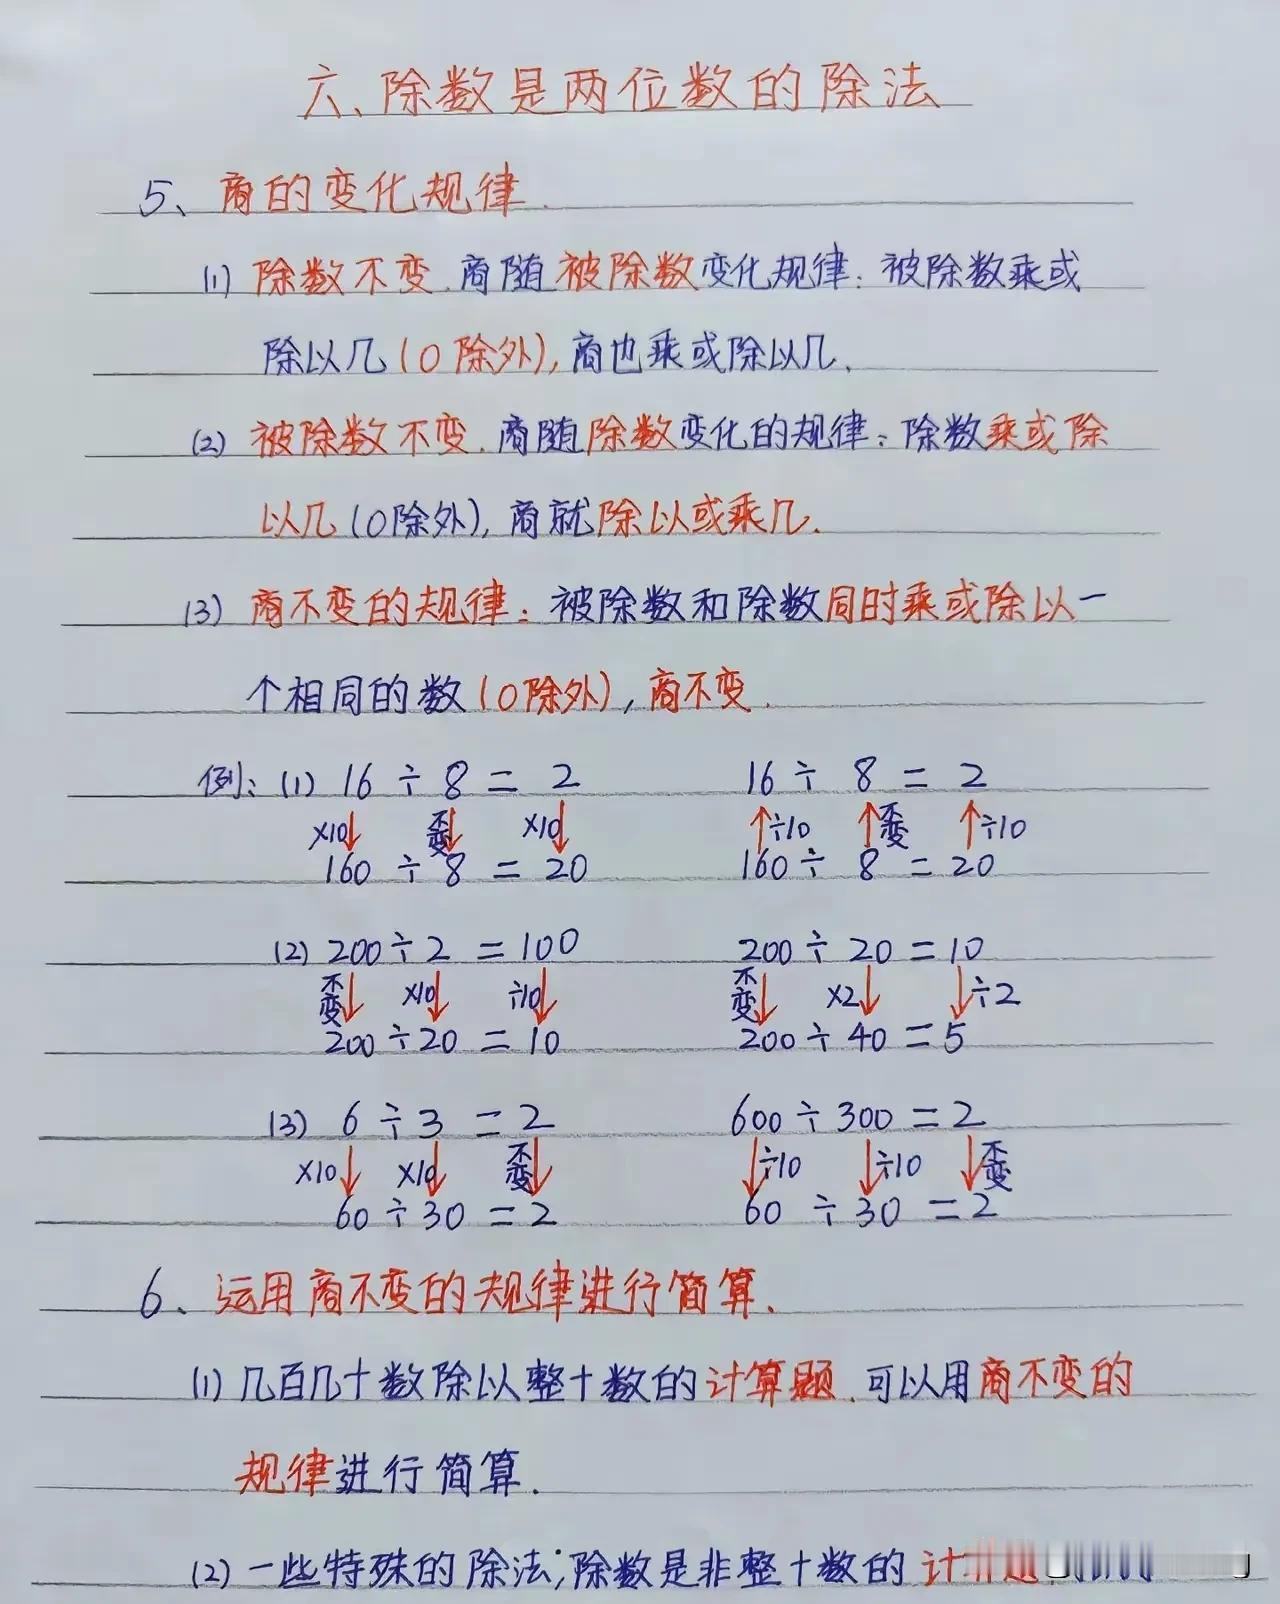 六、除数是两位数的除法
5、商的变化规律.
(1) 除数不变.商随被除数变化规律:被除数乘或
除以几(0除外),商也乘或除以几.
(2) 被除数不变.商随除数变化的规律:除数乘或除
以几(0除外),商就除以或乘几.
(3) 商不变的规律:被除数和除数同时乘或除以一
个相同的数(0除外),商不变.
例:(1) 16÷8=2 16÷8=2
×10↓ 不变↓ ×10↓ ↑÷10 ↑不变 ↑÷10
160÷8=20 160÷8=20
(2) 200÷2=100 200÷20=10
不变↓ ×10↓ ÷10↓ 不变↓ ×2↓ ↓÷2
200÷20=10 200÷40=5
(3) 6÷3=2 600÷300=2
×10↓ ×10↓ 不变↓ ↓÷10 ↓÷10 ↓不变
60÷30=2 60÷30=2
6、运用商不变的规律进行简算.
(1) 几百几十数除以整十数的计算题.可以用商不变的
规律进行简算.
(2) 一些特殊的除法;除数是非整十数的计算题